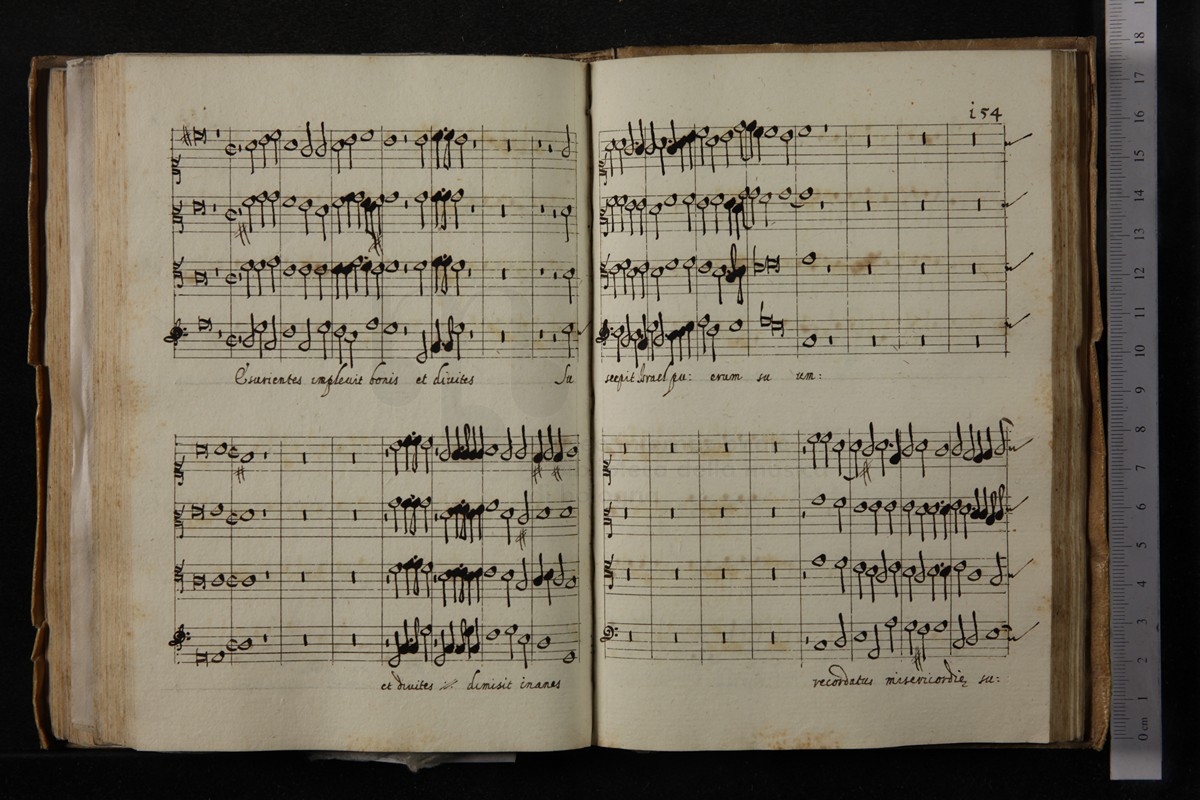 i54
Esurientes impleuit bonis et diuites Su
scepit Israel pu: erum su um:
et diuites dimisit inanes
recordatus misericordię su:
18
17
16
15
14
13
12
11
10
9
8
7
6
5
4
3
2
1
0 cm